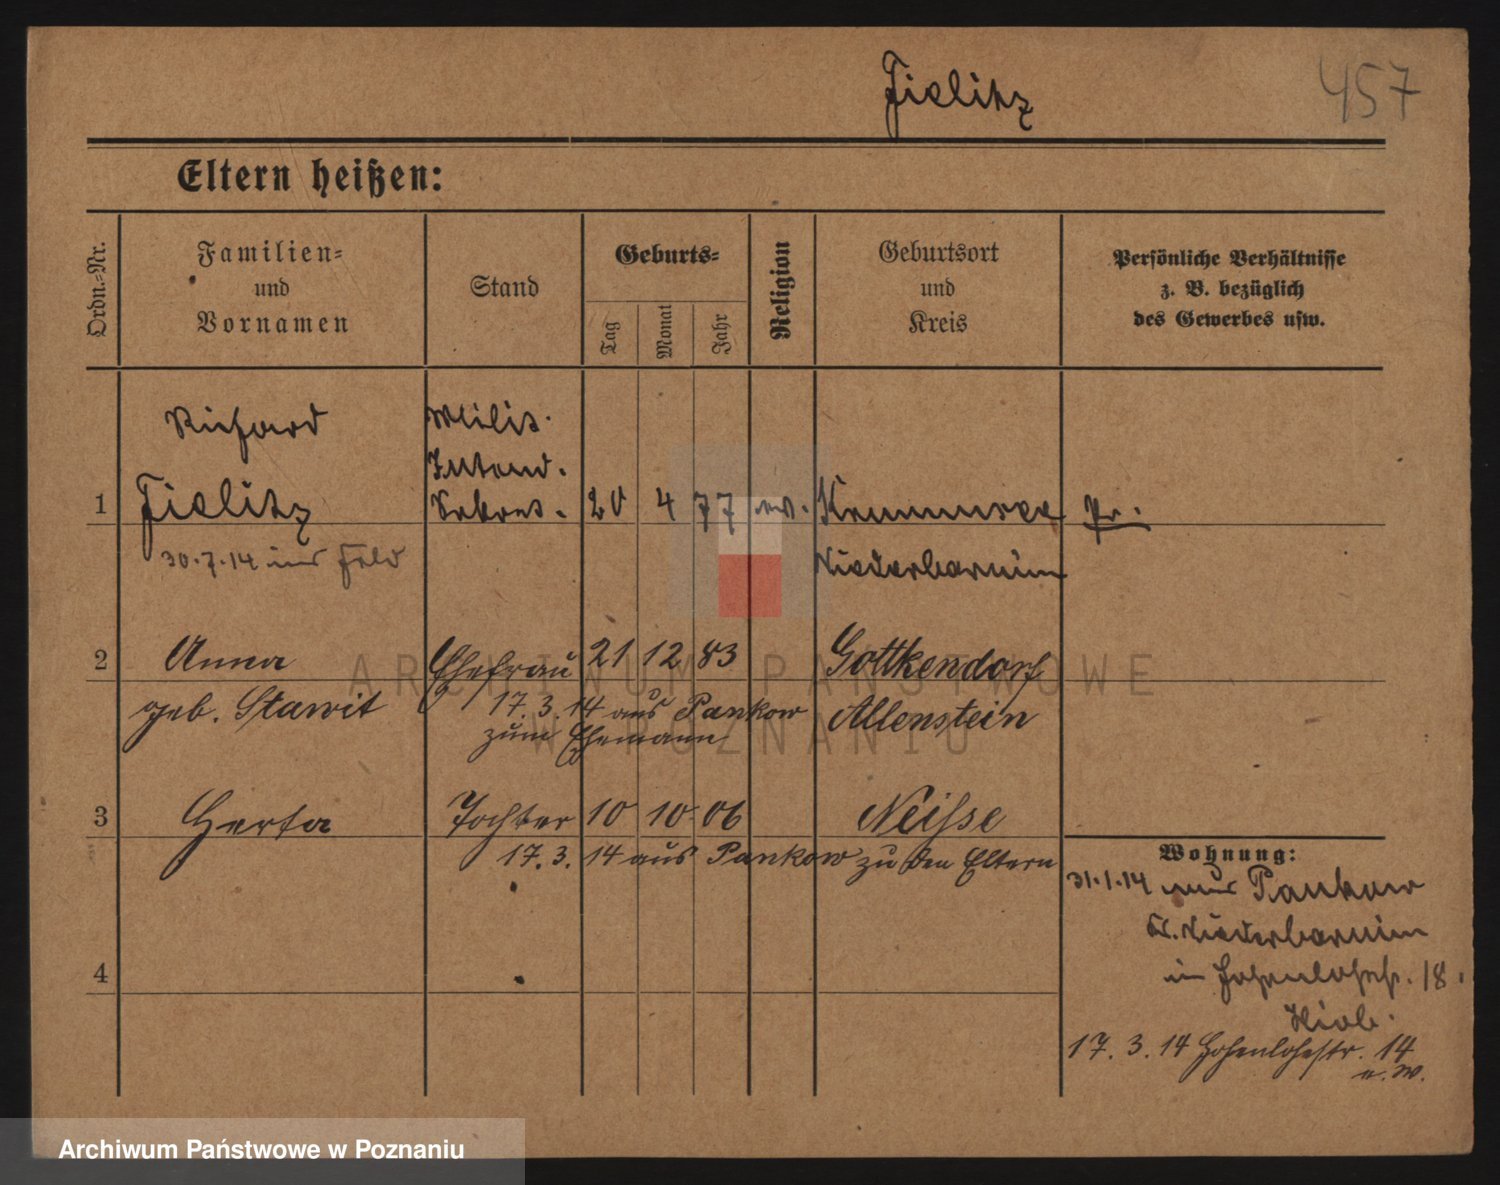 Fielitz
457
Eltern heißen:
Ordn.-Nr.
Familien-
und
Vornamen
Stand
Geburts-
Tag
Monat
Jahr
Religion
Geburtsort
und
Kreis
Persönliche Verhältnisse
z. B. bezüglich
des Gewerbes usw.
Richard
Milit.
Intend.
1 Fielitz Sekret. 20 4 77 ev. Krummsee Pr.
30.7.14 ins Feld
Niederbarnim
2 Anna Ehefrau 21 12 83 Gottkendorf
geb. Stawit 17.3.14 aus Pankow Allenstein
zum Ehemann
3 Herta Tochter 10 10 06 Neisse
17.3.14 aus Pankow zu den Eltern
Wohnung:
31.1.14 aus Pankow
Kr. Niederbarnim
4
in Hohenlohestr. 18.
17.3.14 Hohenlohestr. 14
u. W.
ARCHIWUM PAŃSTWOWE
W POZNANIU
Archiwum Państwowe w Poznaniu